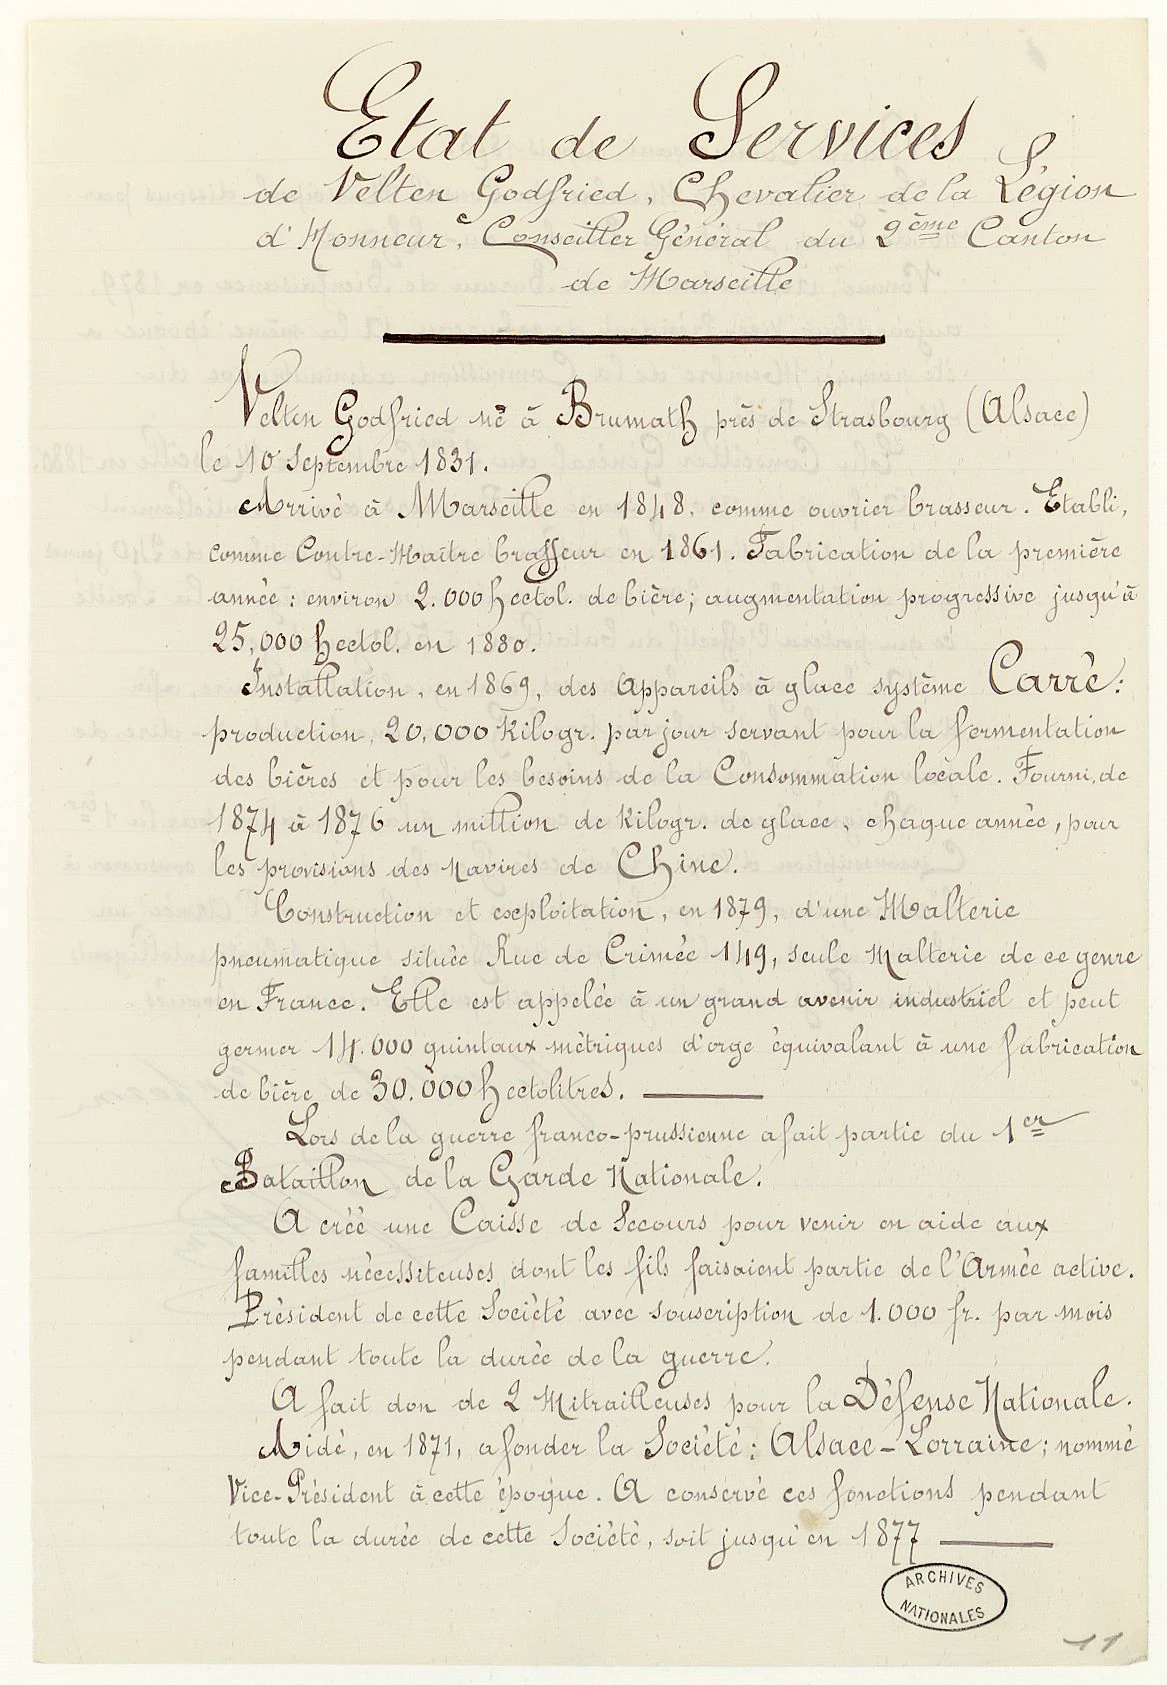 Etat de Services
de Velten Godfried, Chevalier de la Légion
d'Honneur, Conseiller Général du 2ème Canton
de Marseille
Velten Godfried né à Brumath près de Strasbourg (Alsace)
le 10 Septembre 1831.
Arrivé à Marseille en 1848, comme ouvrier brasseur. Etabli,
comme Contre-Maître brasseur en 1861. Fabrication de la première
année: environ 2.000 hectol. de bière; augmentation progressive jusqu'à
25,000 hectol. en 1880.
Installation, en 1869, des Appareils à glace système Carré:
production, 20,000 Kilogr. par jour servant pour la fermentation
des bières et pour les besoins de la Consommation locale. Fourni, de
1874 à 1876 un million de Kilogr. de glace, chaque année, pour
les provisions des navires de Chine.
Construction et exploitation, en 1879, d'une Malterie
pneumatique située Rue de Crimée 149, seule Malterie de ce genre
en France. Elle est appelée à un grand avenir industriel et peut
germer 14.000 quintaux métriques d'orge équivalant à une fabrication
de bière de 30.000 hectolitres.
Lors de la guerre franco-prussienne a fait partie du 1er
Bataillon de la Garde Nationale.
A créé une Caisse de Secours pour venir en aide aux
familles nécessiteuses dont les fils faisaient partie de l'Armée active.
Président de cette Société avec souscription de 1.000 fr. par mois
pendant toute la durée de la guerre.
A fait don de 2 Mitrailleuses pour la Défense Nationale.
Aidé, en 1871, a fonder la Société: Alsace-Lorraine; nommé
Vice-Président à cette époque. A conservé ces fonctions pendant
toute la durée de cette Société, soit jusqu'en 1877
ARCHIVES
NATIONALES
11